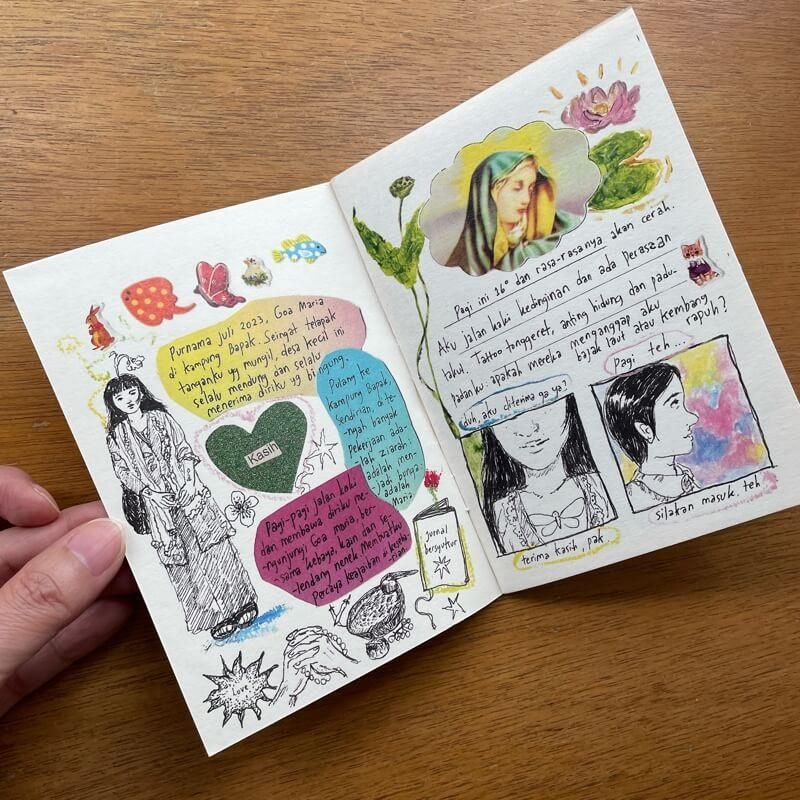 Purnama Juli 2023, Goa Maria
di kampung Bapak. Seingat telapak
tanganku yg mungil, desa kecil ini
selalu mendung dan selalu
menerima diriku yg bingung.
Pulang ke
kampung Bapak,
sendirian, di te-
-ngah banyak
pekerjaan ada-
-lah ziarah:
adalah men-
-jadi
adalah
Maria
Kasih
Pagi-pagi jalan kaki
dan membawa diriku me-
-ngunjungi Goa Maria, ber-
-sama kebaya, kain dan se-
-lendang nenek. Membuatku
percaya keajaiban &
jurnal
bersyukur
Love
Pagi ini 16° dan rasa-rasanya akan cerah.
Aku jalan kaki kedinginan dan ada perasaan
takut. Tattoo tonggeret, anting hidung dan padu-
-padanku: apakah mereka menganggap aku
bajak laut atau kembang
rapuh?
duh, aku diterima ga ya?
Pagi teh...
terima kasih, pak.
silakan masuk, teh